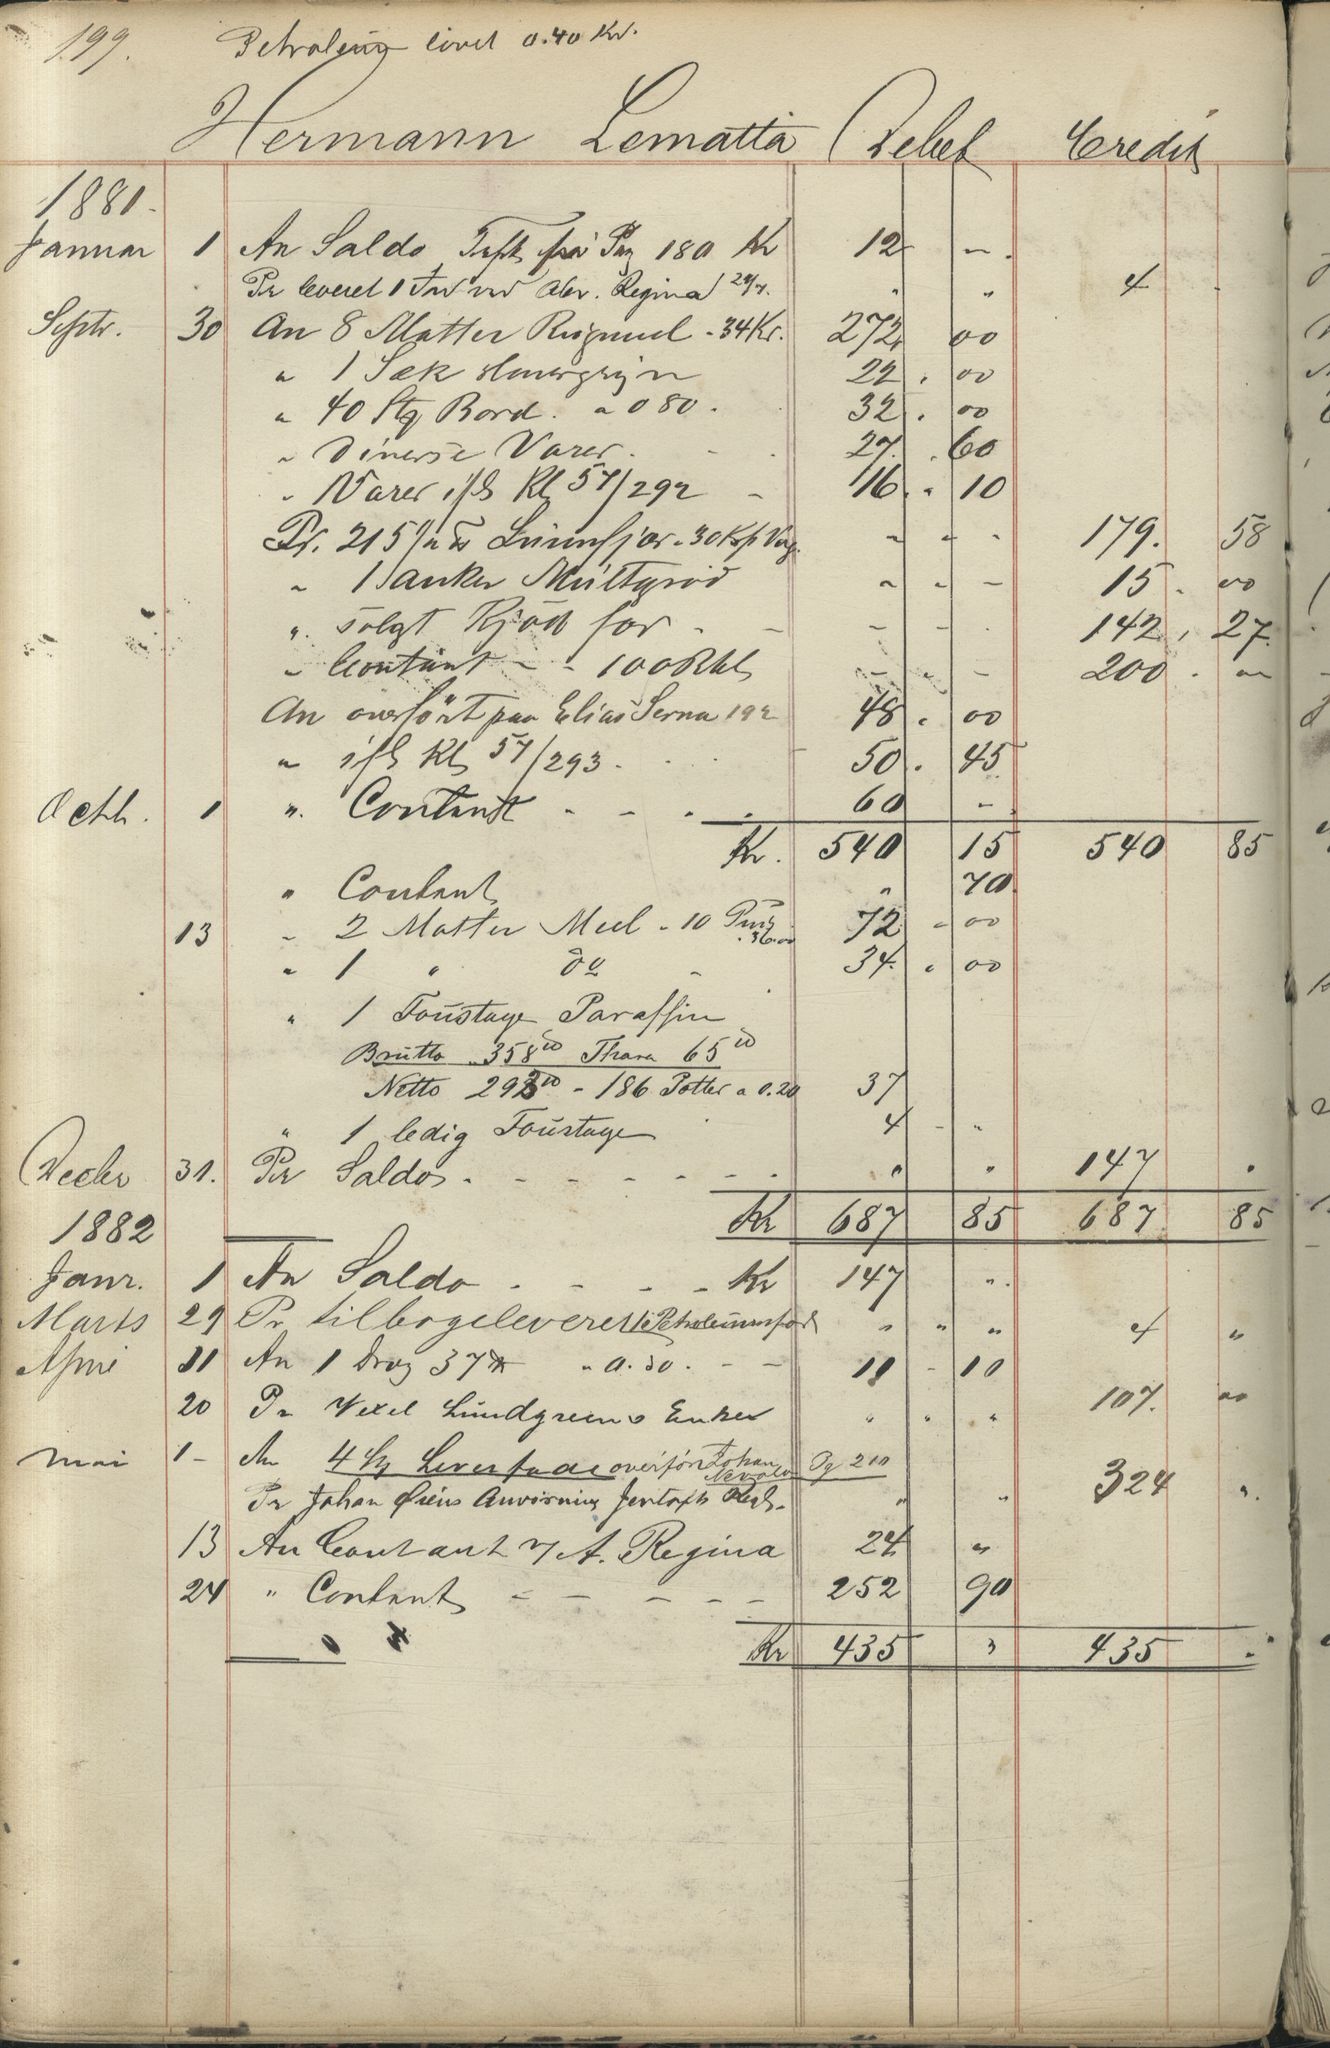 199. Petroleum lovet 0.40 Kr.
Hermann Lematta Debet Credit
1881.
Januar 1 An Saldo fra Pag 180 Kr 12 - .
Pr leveret 1 Fad ved Abr. Regina 4 -
Septr. 30 An 8 Matter Rugmeel - 34 Kr. 272 00
" 1 Sæk Havregryn 22 . 00
" 40 Stq Bord. a 0 80. 32 . 00
" Diverse Varer. 27. . 60
" Varer ifl Kl 57/292 - 16 . " 10
Pr. 215 30 179. 58
" 1 anker Multegrød " " - 15 . 00
" solgt Kjød for - - - - . 142 . 27
" Contant - - 100 - - - 200 . -
An overført paa Elias Serna 192 48 . 00
" ifl Kl 57/293 . 50 . 45
Octb. 1 " Contant - - . . 60 -
Kr. 540 15 540 85
" Contant " 70
13 " 2 Matter Meel - 10 Pund 36.00 72 - 00
" 1 " do - 34. . 00
" 1 Foustage Paraffin
Brutto . 358 Thara 65
Netto 293 - 186 Potter a 0.20 37
" 1 ledig Foustage 4 - "
Decbr 31. Pr Saldo . - - - - - - " " 147 .
1882 Kr 687 85 687 85
Janr. 1 An Saldo . - - - - Kr 147 " .
Marts 29 Pr tilbageleveret 1 Petroleumsfad " " " 4 "
April 11 An 1 Drag 37 " 0.30. - - 11 - 10
20 Pr Vexel Lundgreens Enke " " " 107. 00
Mai 1 - An 4 overført Johan Pg 210
Pr Johan Anvisning " " 324 " .
13 An Contant v/ A. Regina 24 "
24 " Contant - - - - - 252 90
Kr 435 " 435 -